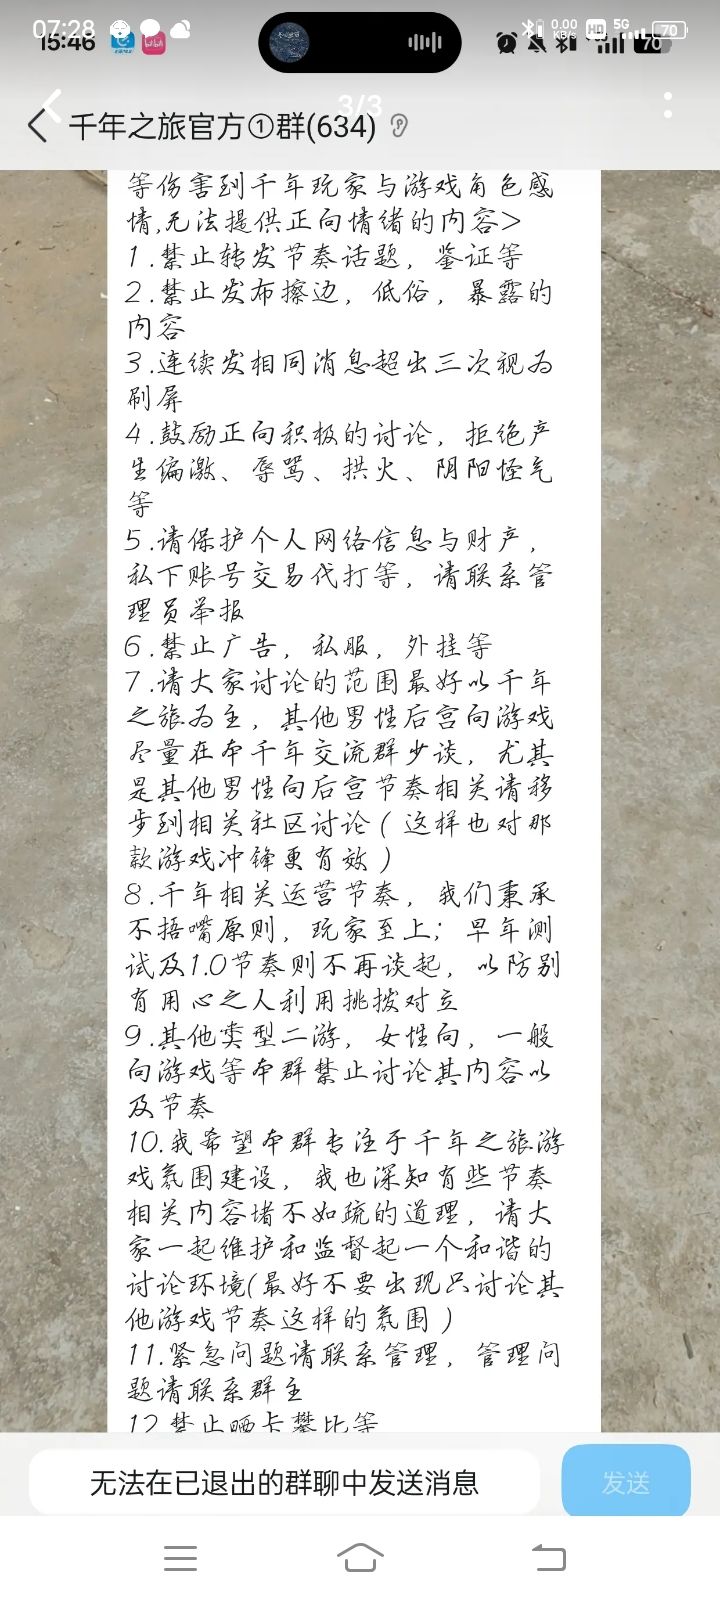 07:28
15:46
0.00
KB/s
HD
5G
70
70
3/3
千年之旅官方①群(634)
等伤害到千年玩家与游戏角色感
情,无法提供正向情绪的内容>
1.禁止转发节奏话题，鉴证等
2.禁止发布擦边，低俗，暴露的
内容
3.连续发相同消息超出三次视为
刷屏
4.鼓励正向积极的讨论，拒绝产
生偏激、辱骂、拱火、阴阳怪气
等
5.请保护个人网络信息与财产，
私下账号交易代打等，请联系管
理员举报
6.禁止广告，私服，外挂等
7.请大家讨论的范围最好以千年
之旅为主，其他男性后宫向游戏
尽量在本千年交流群少谈，尤其
是其他男性向后宫节奏相关请移
步到相关社区讨论（这样也对那
款游戏冲锋更有效）
8.千年相关运营节奏，我们秉承
不捂嘴原则，玩家至上；早年测
试及1.0节奏则不再谈起，以防别
有用心之人利用挑拨对立
9.其他类型二游，女性向，一般
向游戏等本群禁止讨论其内容以
及节奏
10.我希望本群专注于千年之旅游
戏氛围建设，我也深知有些节奏
相关内容堵不如疏的道理，请大
家一起维护和监督起一个和谐的
讨论环境(最好不要出现只讨论其
他游戏节奏这样的氛围）
11.紧急问题请联系管理，管理问
题请联系群主
12.禁止晒卡攀比等
无法在已退出的群聊中发送消息
发送